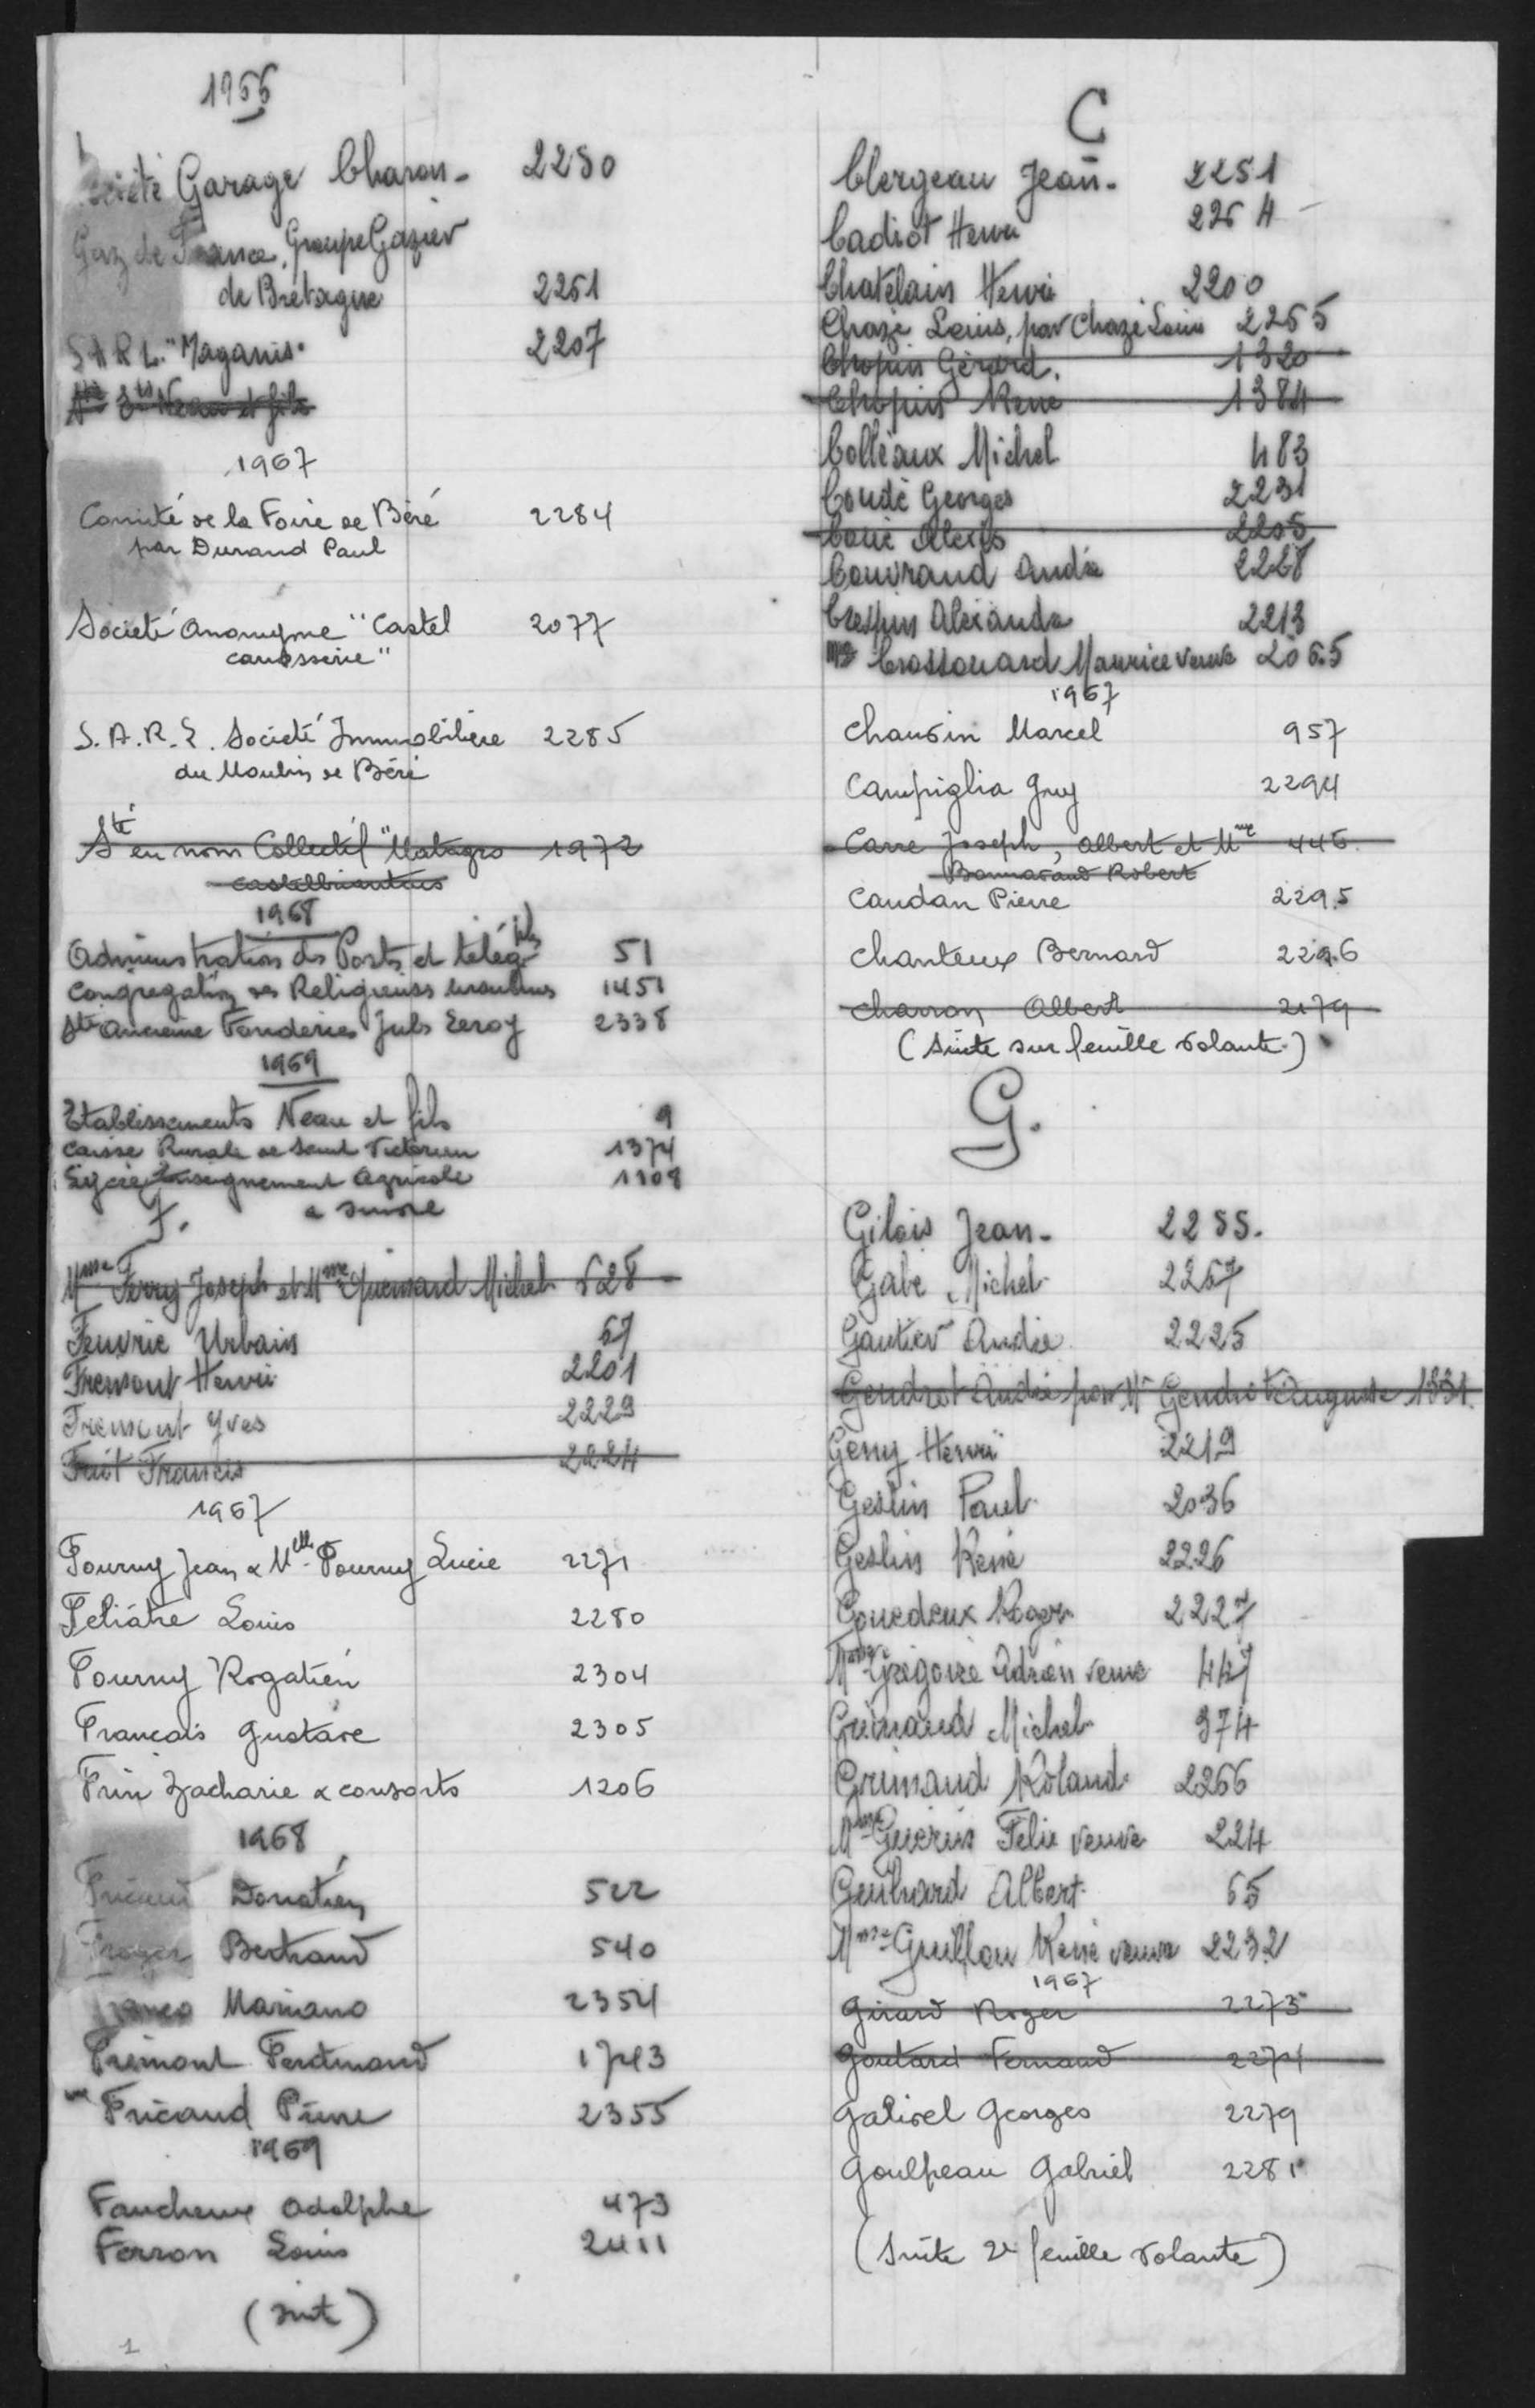 1966
Société Garage Charon - 2250
Gaz de France, Groupe Gazier
de Bretagne 2261
S A R L. "Maganis" 2207
Neau et fils
1967
Comité de la Foire de Béré 2284
par Durand Paul
Société Anonyme "Castel 2077
causserie"
S.A.R.L. Société Immobilière 2285
du Moulin de Béré
Sté en nom Collectif "Matagro 1972
castelbriantais
1968
Administration des Posts et télég 51
Congregation des Religieuses ursulines 1451
Sté Ancienne Fonderies Juls Leroy 2338
1969
Etablissements Neau et fils 9
Caisse Rurale de Saint Victorien 1374
Lycée Enseignement Agricole 1308
a suivre
F.
Mme Ferry Joseph et Mme Guémard Michel 528
Feuvrie Urbain 67
Fremont Henri 2201
Fremont Yves 2229
Fruit Francis 2224
1967
Fourny Jean & Melle Fourny Lucie 2271
Feliâtre Louis 2280
Fourny Rogatien 2304
Francais Gustave 2305
Frin Zacharie & consorts 1206
1968
Donatien 522
Froger Bertrand 540
Mariano 2354
Fremont Ferdinand 1743
Fricaud Pierre 2355
1969
Faucheux Adolphe 473
Ferron Louis 2411
(suite)
1
C
Clergeau Jean - 2251
Cadiot Henri 2264
Chatelain Henri 2200
Chazé Louis, par Chazé Louis 2265
Chopin Gérard. 1320
Chopin René 1384
Colléaux Michel 483
Coudé Georges 2231
Couié Alexis 2205
Couvrand André 2228
Crespin Alexandre 2213
Crossouard Maurice veuve 2065
1967
Chauvin Marcel 957
Campiglia Guy 2294
Carré Joseph, Albert et Mme 446
Bonnasaud Robert
Caudan Pierre 2295
Chanteux Bernard 2296
Charron Albert 2179
(Suite sur feuille volante)
G.
Gilois Jean - 2255.
Gabé Michel 2267
Gautier André 2225
Gendrot André par Mr Gendrot Auguste 1331
Geny Henri 2219
Geslin Paul 2036
Geslin René 2226
Gouedeux Roger 2227
Mme Grégoire Adrien veuve 447
Grimaud Michel 374
Grimaud Roland 2266
Mme Guérin Félix veuve 224
Guihard Albert 65
Mme Guillou René veuve 2232
1967
Girard Roger 2273
Goutard Fernand 2274
Galivel Georges 2279
Goulpeau Gabriel 2281
(Suite 2e feuille volante)